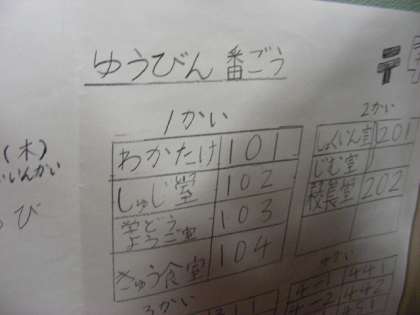 ゆうびん 番ごう
〒
1かい
わかたけ 101
しゅじ室 102
学どう
ようご室 103
きゅう食室 104
2かい
しょくいん室 201
じむ室
校長室 202
3かい
4かい
4-1 441
4-2 442
(木)
び